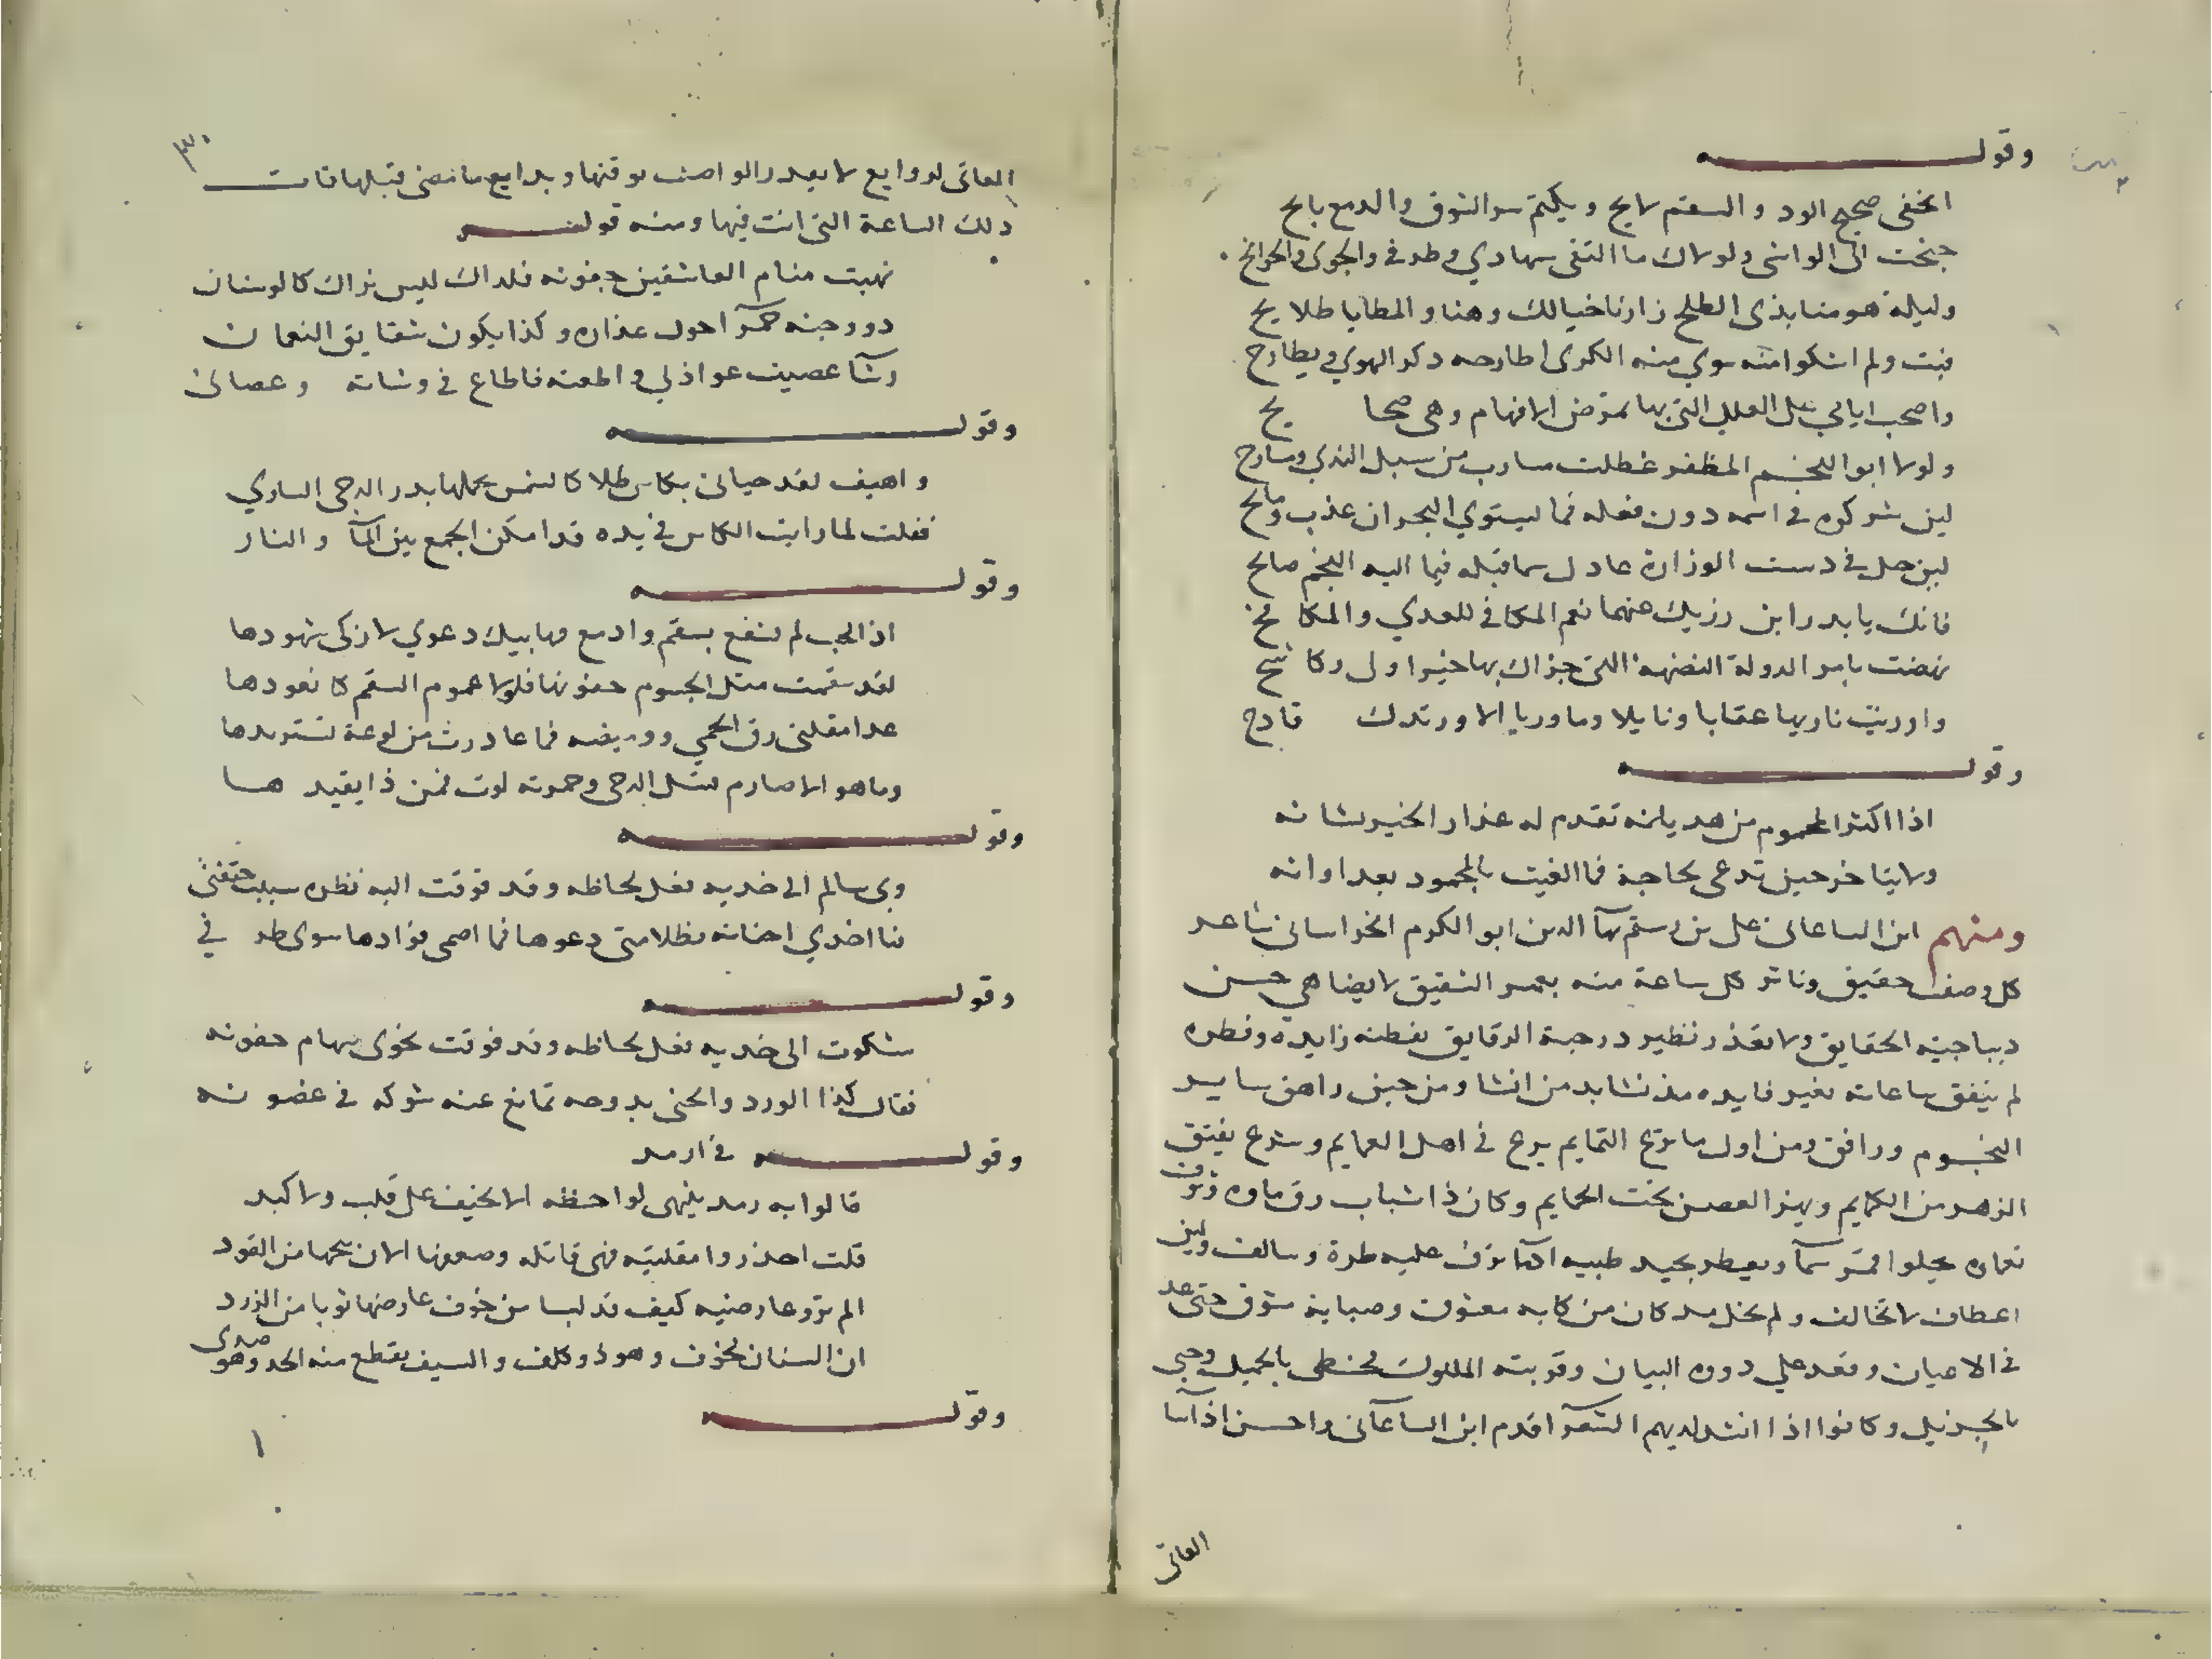 وقوله
اتخفى صحيح الود والسقم لايح ويكتم سر الشوق والدمع بايح
جنحت الى الواشى ولولاك ما التقى سهادي وطرفى والجوى والجوانح
وليلة هومنا بذى الطلح زارنا خيالك وهنا والمطايا طلايح
فبت ولم اشكوا منه سوي منه الكرى اطارحه ذكر الهوي ويطارح
واصحب ايالي على العلل التى بها تمرض الافهام وهى صحايح
ولولا ابو النجم المظفر عطلت مسارب من سبل الندي ومسارح
لين شركوه في اسمه دون فعله فما يستوي البحران عذب ومالح
لين حل في دست الوزارة عادل سما قبله فيما اليه النجم صالح
فانك يا بدر ابن رزيك عنهما نعم المكافى للعدي والمكافح
نهضت بامر الدولة النهضة التى جزاك بها خيرا ولى وكاشح
واوريت ناريها عقابا ونايلا وما وريا الا ورندك قادح
وقوله
اذا اكثر المحموم من هذيانه تقدم له عذار الخير بشانه
ولا يتاخر حين تدعى بحاجة فما الغيث بالمحمود بعد اوانه
ومنهم ابن الساعاتى على بن رستم بهآ الدين ابو الكرم الخراسانى شاعر
كل وصف حقيق وناثر كل ساعة منه بعمر الشقيق لا يضاهي حسن
ديباجيته الحقايق ولا بقدر نظير درجة الدقايق بفطنه زايده وفطره
لم ينفق ساعاته بغير فايده مذ نشا بدمن انشا ومن حين راهق ساير
النجوم ورافق ومن اول ما نزع التمايم برع في اهل العمايم وشرع يفتق
الزهر من الكمايم ويهز الغصن تحت الحمايم وكان ذا شباب رق ماوه ورق
نعماه يجلوا قمر سمآ ويعطر بجيد ظبيه ادمآ ترف عليه طرة وسالف ولين
اعطاف لا تخالف ولم يخل مد كان من كابه معشوق وصبابة شوق حتى عد
في الاعيان وقعد علي دوره البيان وقربته الملوك فحظى بالجميل وحبي
بالجزيل وكانوا اذا انشد لديهم الشعرآ اقدم ابن الساعاتى واحسن اذا اسآ
العاتى
٣٠
العاتى لروايع لا يعذر الواصف بوقتها وبدايع ما مضى قبلها فات
ذلك الساعة التى انت فيها ومنه قوله
نهبت منام العاشقين جفونه فلذاك ليس نراك كالوسنان
ذو وجنه حمرآ حول عذاره وكذا يكون شقايق النعمان
وشآ عصيت عواذلي واطعته فاطاع في وشاته وعصانى
وقوله
واهيف لقد حيانى بكاس طلا كالشمس يحملها بدر الدجى الساري
فقلت لما رايت الكاس في يده قد امكن الجمع بين المآ والنار
وقوله
اذا الحب لم تشفع بسقم وادمع فهاتيك دعوي لا تزكى شهودها
لقد سقمت مثل الجسوم جفونها فلولا عموم السقم كا نعودها
عدا مقلتى رق الحمي ووميضه فما غادرت من لوعة تستزيدها
وما هو الا صارم مثل الدجى وحموته لوث فمن ذا يقيدها
وقوله
وبى سالم الى خديه فعل لحاظه وقد فوقت اليه نظره سيبت حتفتى
فنا اخدي اجفانه بظلامتى دعوها فما اصمى فؤادها سوى طرفي
وقوله
شكوت الى خديه فعل لحاظه وقد فوقت نحوى سهام جفونه
فقال كذا الورد والجنى بدوحه تمانع عنه شوكه في غصونه
وقوله في ارمد
قالوا به رمد ينهى لواحظه الا تخيف على قلب ولا كبد
قلت احذروا مقلتيه فهى قاتله وضعفها الان يحمها من القود
الم تروعارضيه كيف قد لبسا من خوف عارضها ثوبا من الزرد
ان السنان يخوف وهو ذو كلف والسيف يقطع منه الحد وهو صدى
وقوله
١